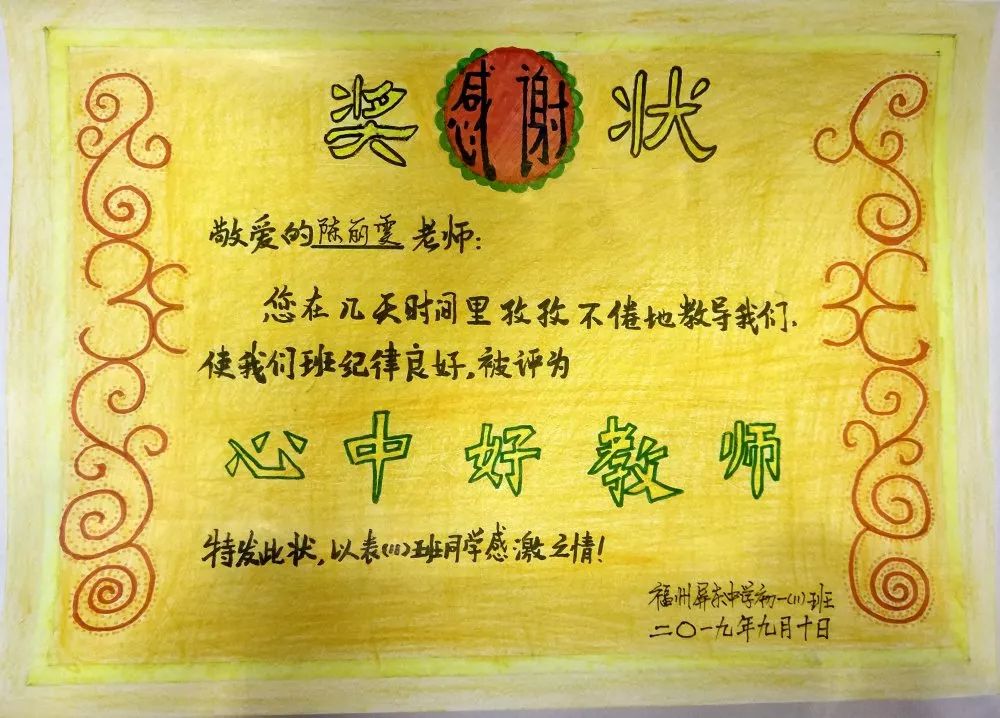 奖感谢状
敬爱的陈丽雯老师:
您在几天时间里孜孜不倦地教导我们.
使我们班纪律良好,被评为
心中好教师
特发此状,以表(11)班同学感激之情!
福州屏东中学初一(11)班
二〇一九年九月十日